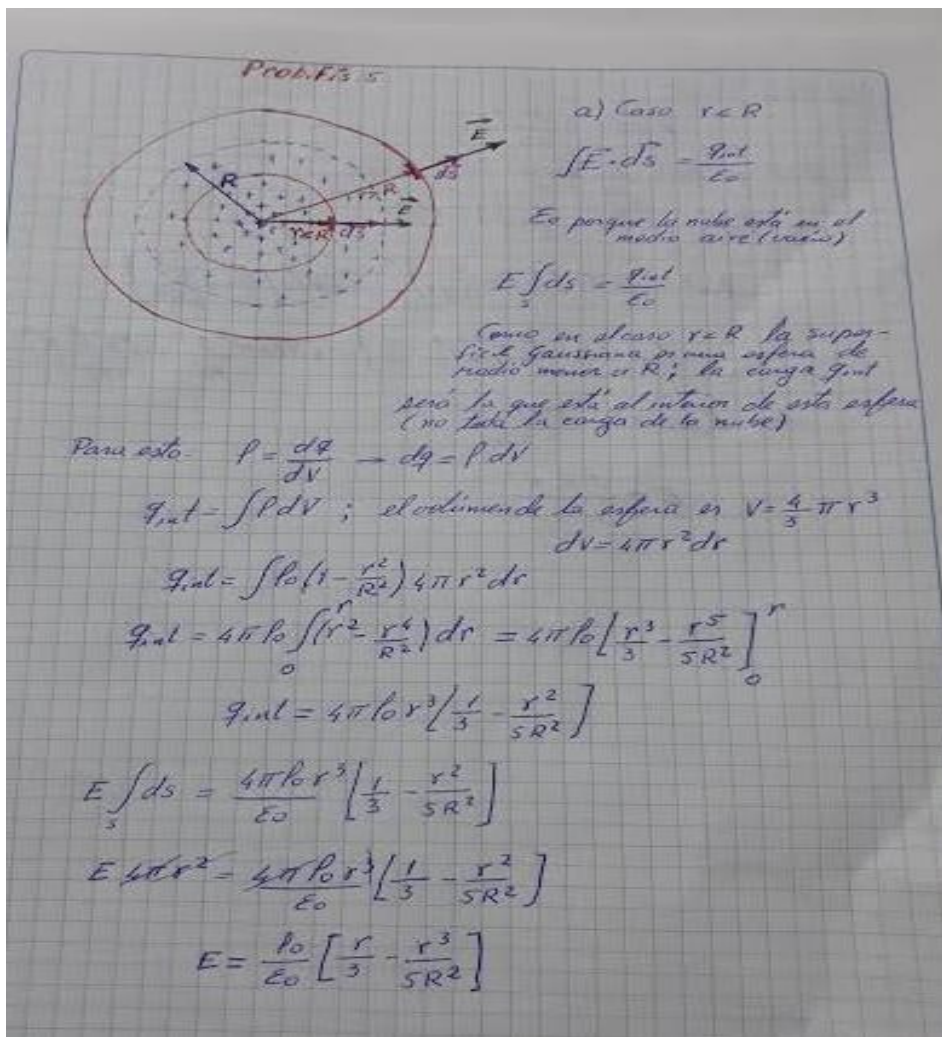 Prob. Fis 5
R
r>R
E
ds
r<R ds
E
a) Caso r<R
∫E·ds = qint/ε0
ε0 porque la nube está en el medio aire (vacío)
E∫s ds = qint/ε0
Como en el caso r<R la super-
ficie Gaussiana es una esfera de
radio menor a R; la carga qint
será la que está al interior de esta esfera
(no toda la carga de la nube)
Para esto ρ = dq/dV → dq = ρ dV
qint = ∫ρdV ; el volúmen de la esfera es V = 4/3 πr³
dv = 4πr²dr
qint = ∫ρ0(1 - r²/R²) 4πr²dr
qint = 4πρ0 ∫0^r (r² - r⁴/R²) dr = 4πρ0 [r³/3 - r⁵/5R²]0^r
qint = 4πρ0r³[1/3 - r²/5R²]
E∫s ds = 4πρ0r³/ε0 [1/3 - r²/5R²]
E 4πr² = 4πρ0r³/ε0 [1/3 - r²/5R²]
E = ρ0/ε0 [r/3 - r³/5R²]